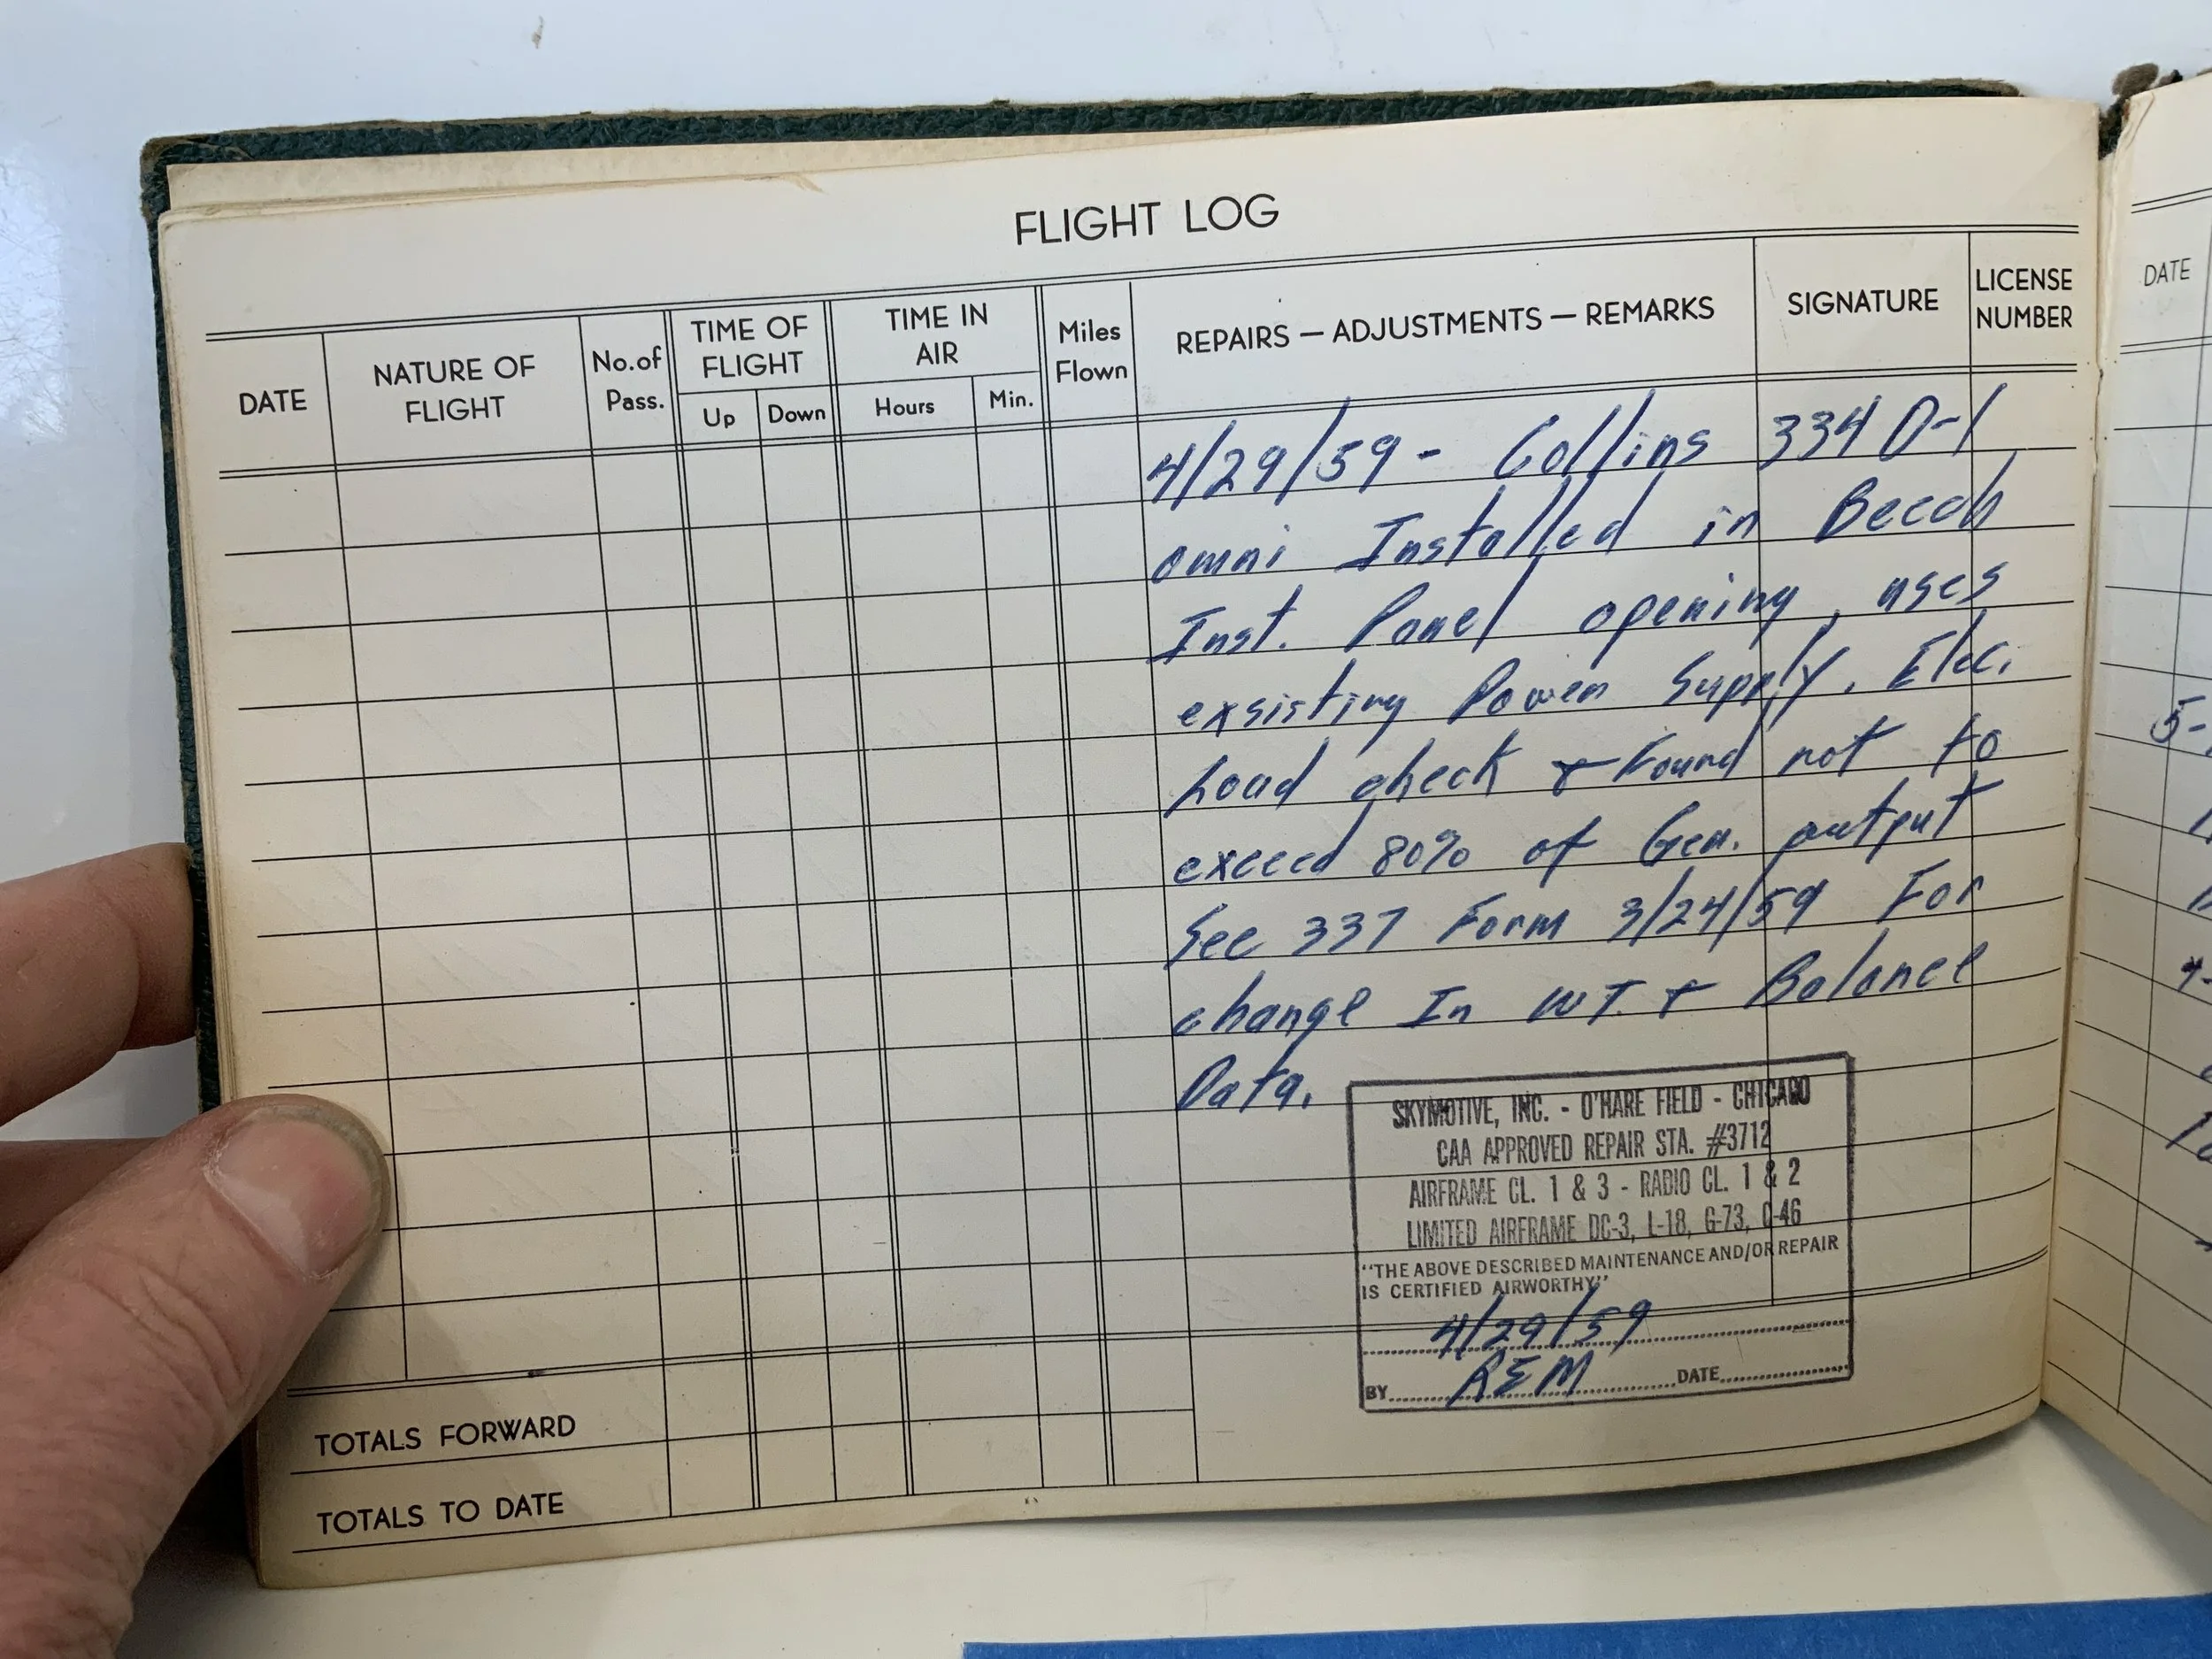 FLIGHT LOG
DATE
NATURE OF FLIGHT
No. of Pass.
TIME OF FLIGHT
Up
Down
TIME IN AIR
Hours
Min.
Miles Flown
REPAIRS — ADJUSTMENTS — REMARKS
SIGNATURE
LICENSE NUMBER
4/29/59 - Collins 334 D-1
omni Installed in Beech
Inst. Panel opening, uses
exsisting Power Supply. Elec.
Load check & Found not to
exceed 80% of Gen. output
See 337 Form 3/24/59 For
change In WT. & Balance
Data.
SKYMOTIVE, INC. - O'HARE FIELD - CHICAGO
CAA APPROVED REPAIR STA. #3712
AIRFRAME CL. 1 & 3 - RADIO CL. 1 & 2
LIMITED AIRFRAME DC-3, L-18, G-73, C-46
"THE ABOVE DESCRIBED MAINTENANCE AND/OR REPAIR
IS CERTIFIED AIRWORTHY"
4/29/59
BY REM DATE
TOTALS FORWARD
TOTALS TO DATE
DATE
5-